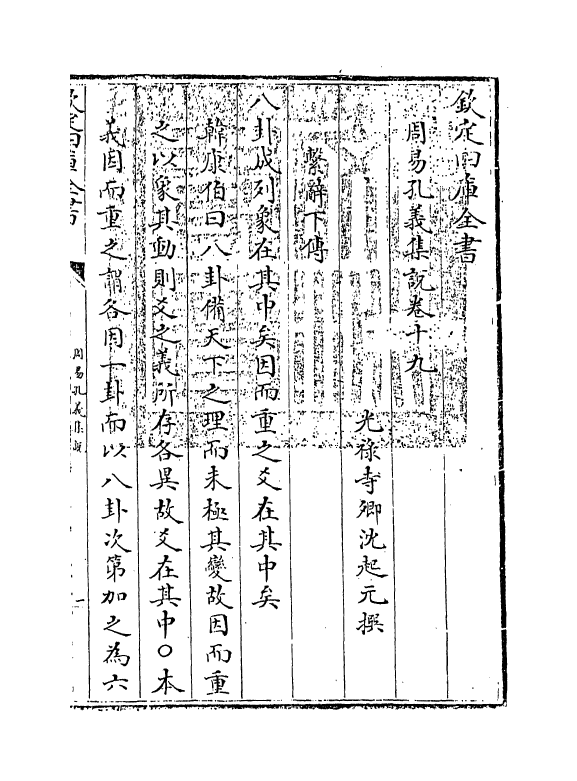 欽定四庫全書
周易孔義集說卷十九
光祿寺卿沈起元撰
繫辭下傳
八卦成列象在其中矣因而重之爻在其中矣
韓康伯曰八卦備天下之理而未極其變故因而重
之以象其動則爻之義所存各異故爻在其中○本
義因而重之謂各因一卦而以八卦次第加之為六
欽定四庫全書
周易孔義集說
一